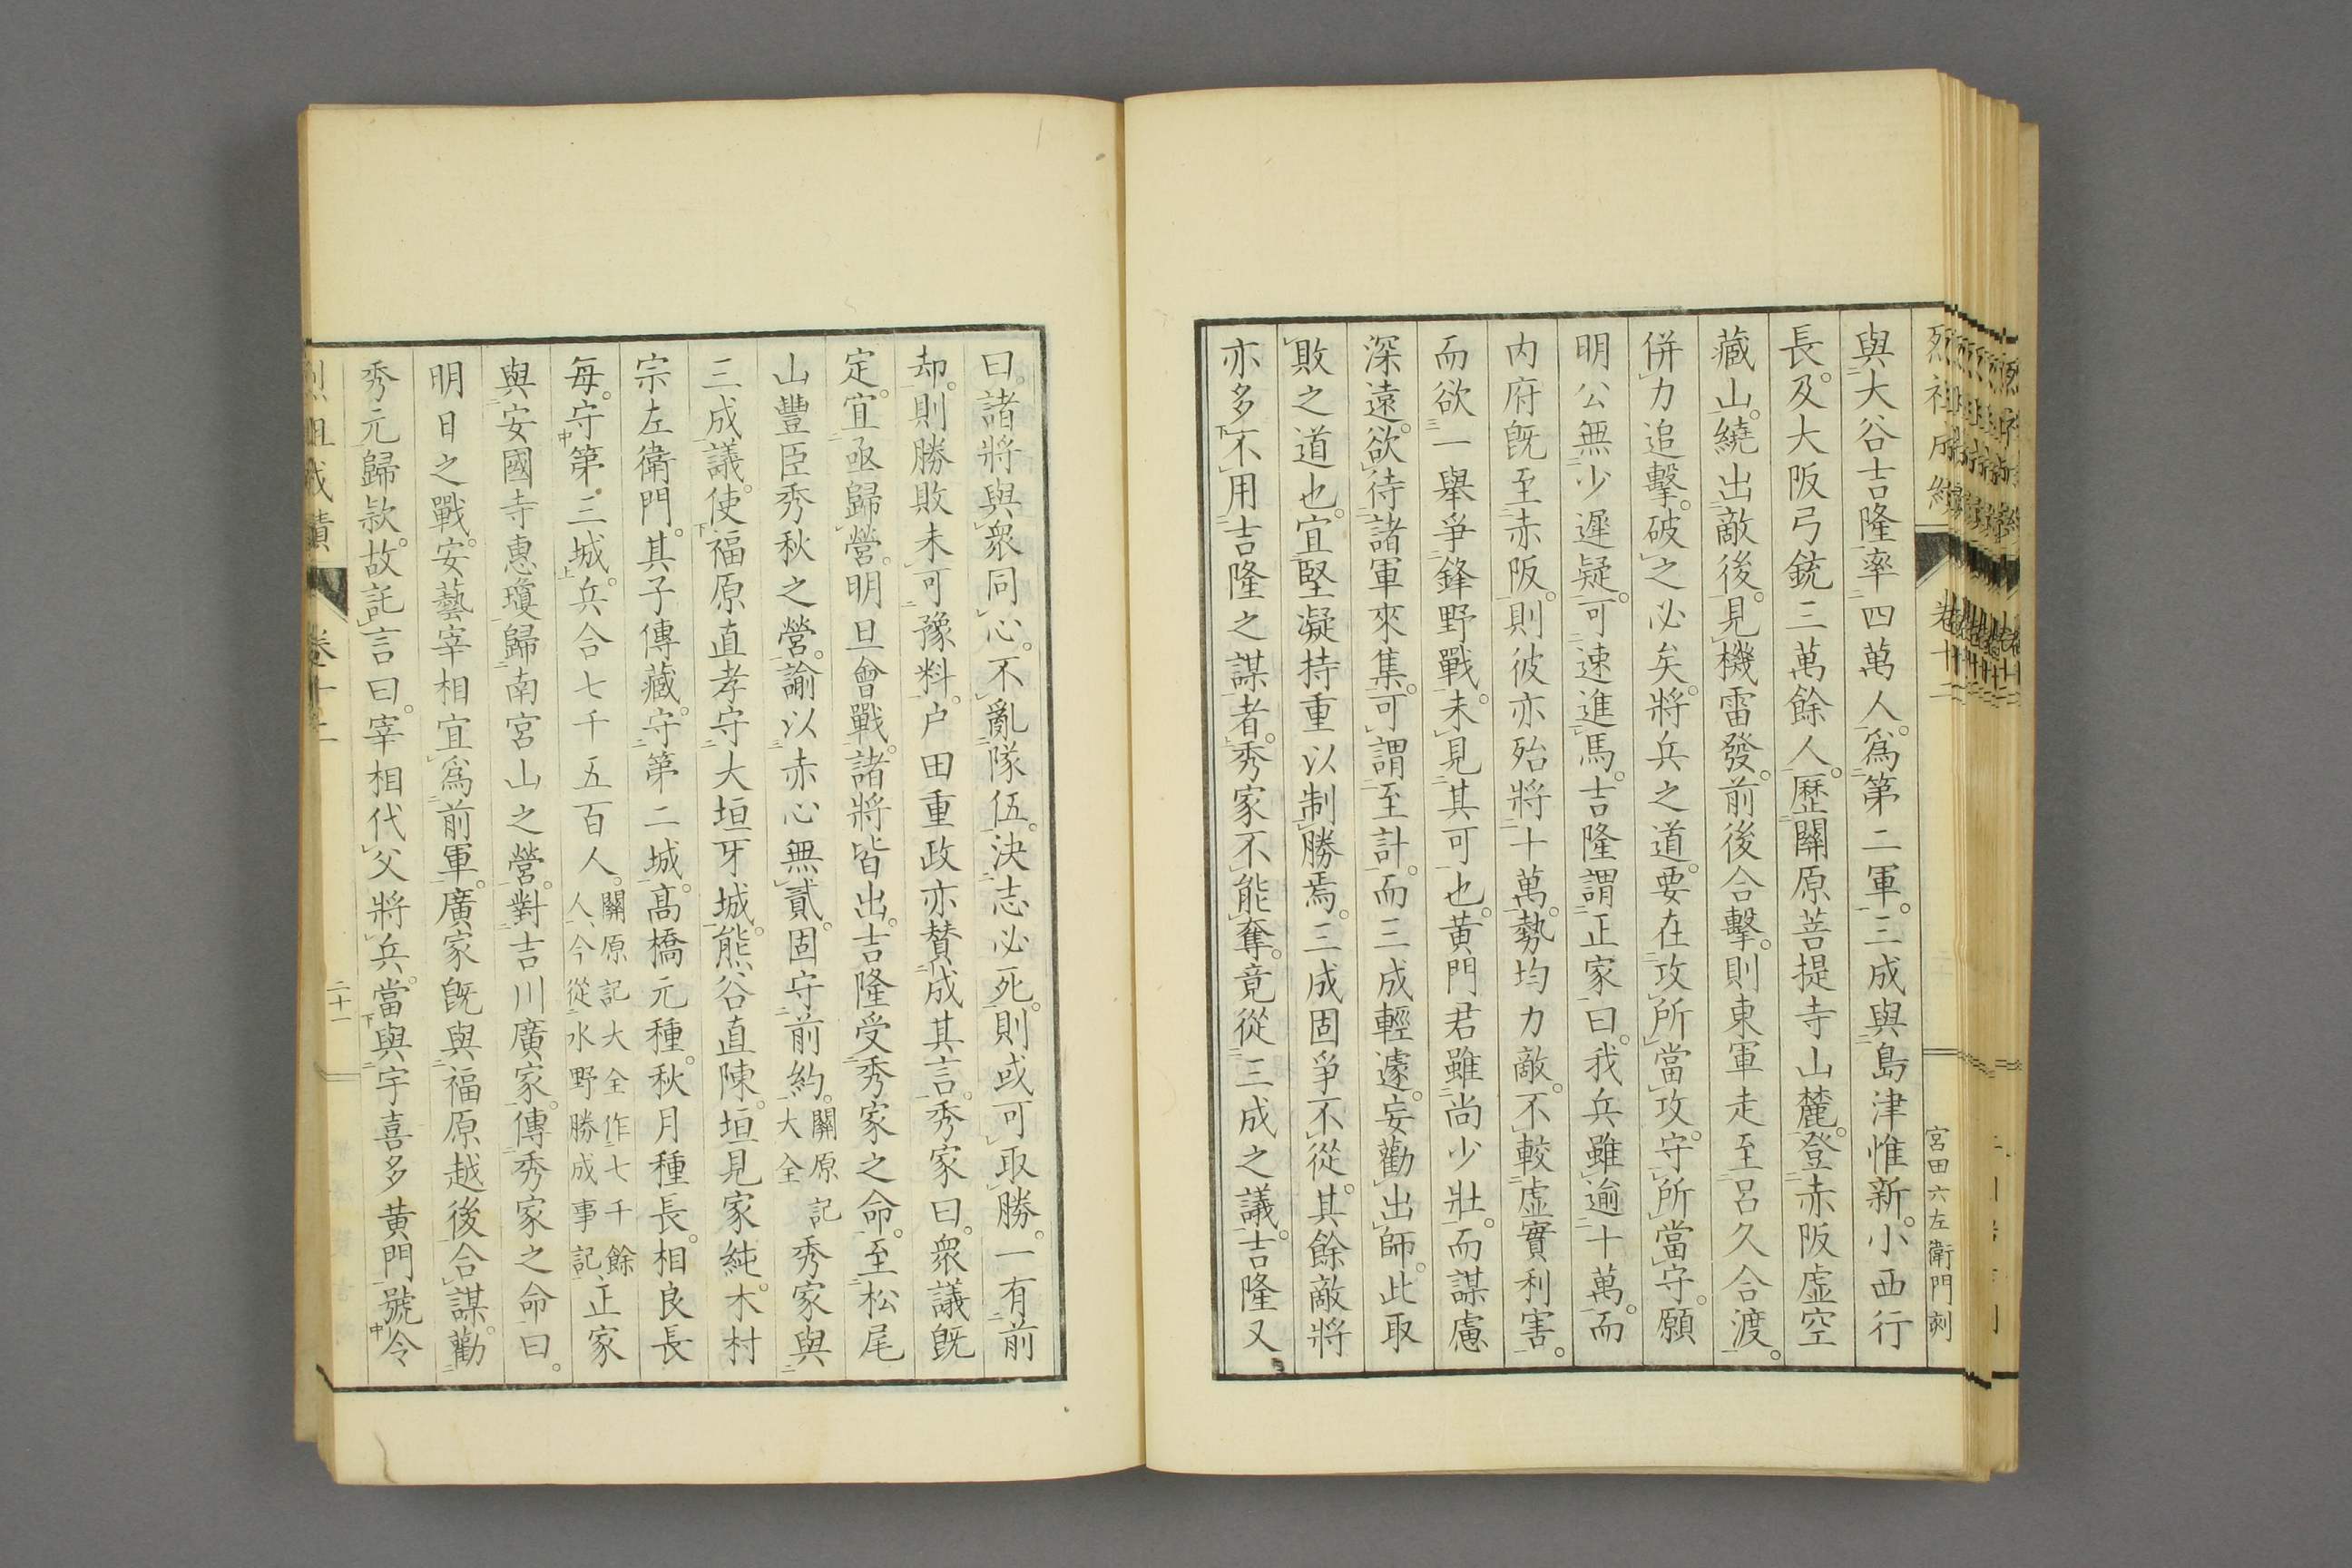 與大谷吉隆率四萬人。爲第二軍。三成與島津惟新。小西行
長。及大阪弓銃三萬餘人。歷關原菩提寺山麓。登赤阪虛空
藏山。繞出敵後。見機雷發。前後合擊。則東軍走至呂久合渡。
併力追擊。破之必矣。將兵之道。要在攻所當攻。守所當守。願
明公無少遲疑。可速進馬。吉隆謂正家曰。我兵雖逾十萬。而
内府既至赤阪。則彼亦殆將十萬。勢均力敵。不較虛實利害。
而欲一舉爭鋒野戰。未見其可也。黄門君雖尚少壯。而謀慮
深遠。欲待諸軍來集。可謂至計。而三成輕遽。妄勸出師。此取
敗之道也。宜堅凝持重以制勝焉。三成固爭不從。其餘敵將
亦多不用吉隆之謀者。秀家不能奪。竟從三成之議。吉隆又
曰。諸將與衆同心。不亂隊伍。決志必死。則或可取勝。一有前
却。則勝敗未可豫料。户田重政亦賛成其言。秀家曰。衆議既
定。宜亟歸營。明旦會戰。諸將皆出。吉隆受秀家之命。至松尾
山豐臣秀秋之營。諭以赤心無貳。固守前約。關原記大全秀家與
三成議。使福原直孝守大垣牙城。熊谷直陳。垣見家純。木村
宗左衛門。其子傳藏。守第二城。高橋元種。秋月種長。相良長
每。守第三城。兵合七千五百人。關原記大全作七千餘人、今從水野勝成事記正家
與安國寺惠瓊歸南宮山之營。對吉川廣家。傳秀家之命曰。
明日之戰。安藝宰相宜爲前軍。廣家既與福原越後合謀。勸
秀元歸款。故託言曰。宰相代父將兵。當與宇喜多黄門號令
卷十二
二十一
卷十二
宮田六左衛門刻